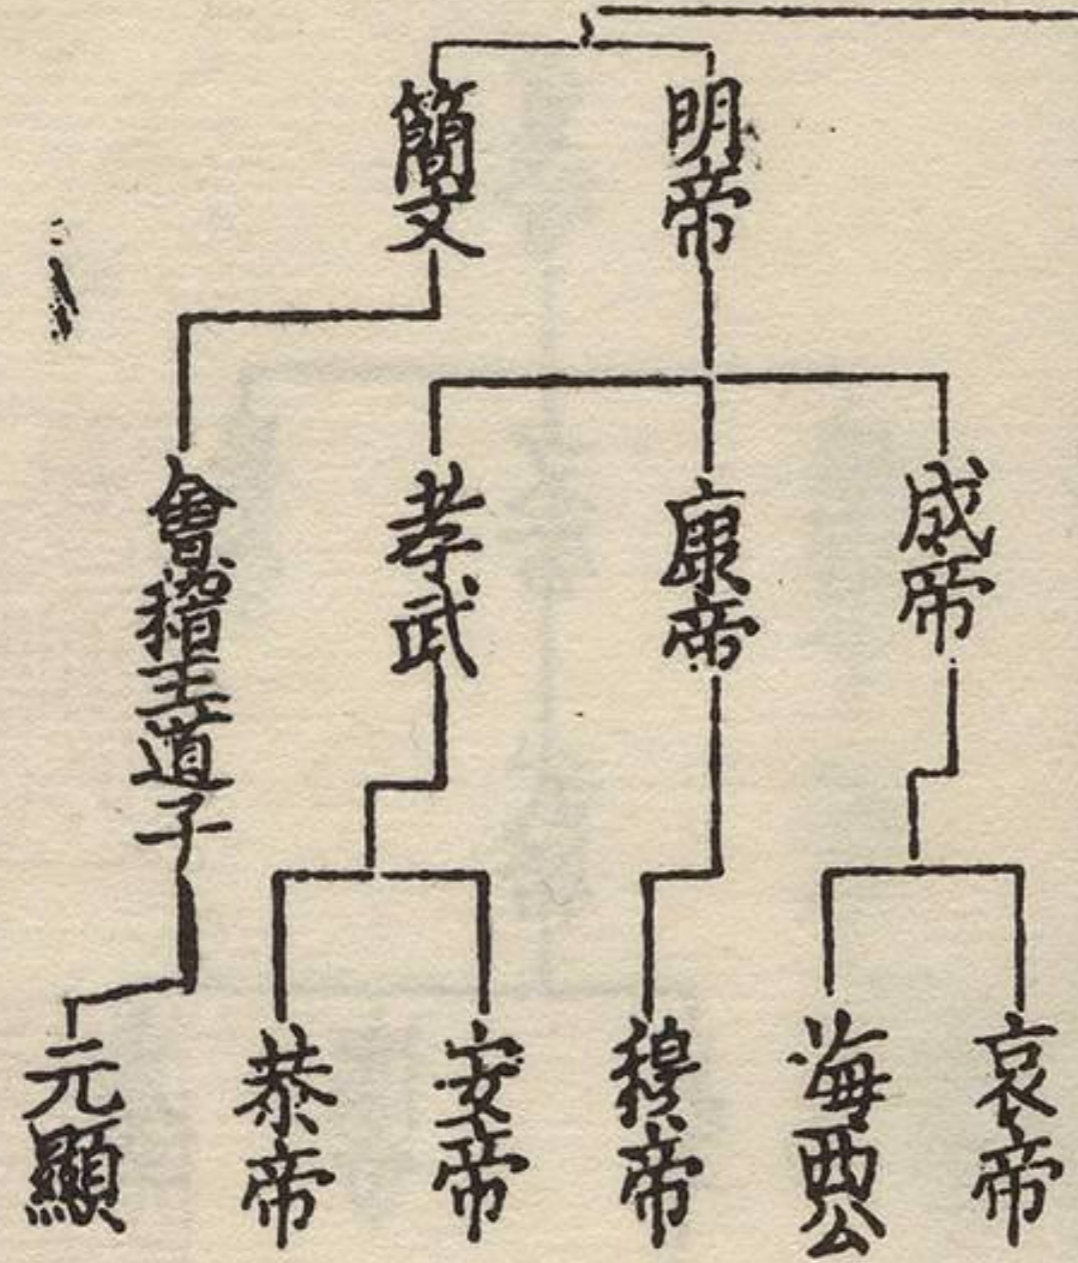 明帝
簡文
成帝
康帝
孝武
會稽王道子
哀帝
海西公
穆帝
安帝
恭帝
元顯